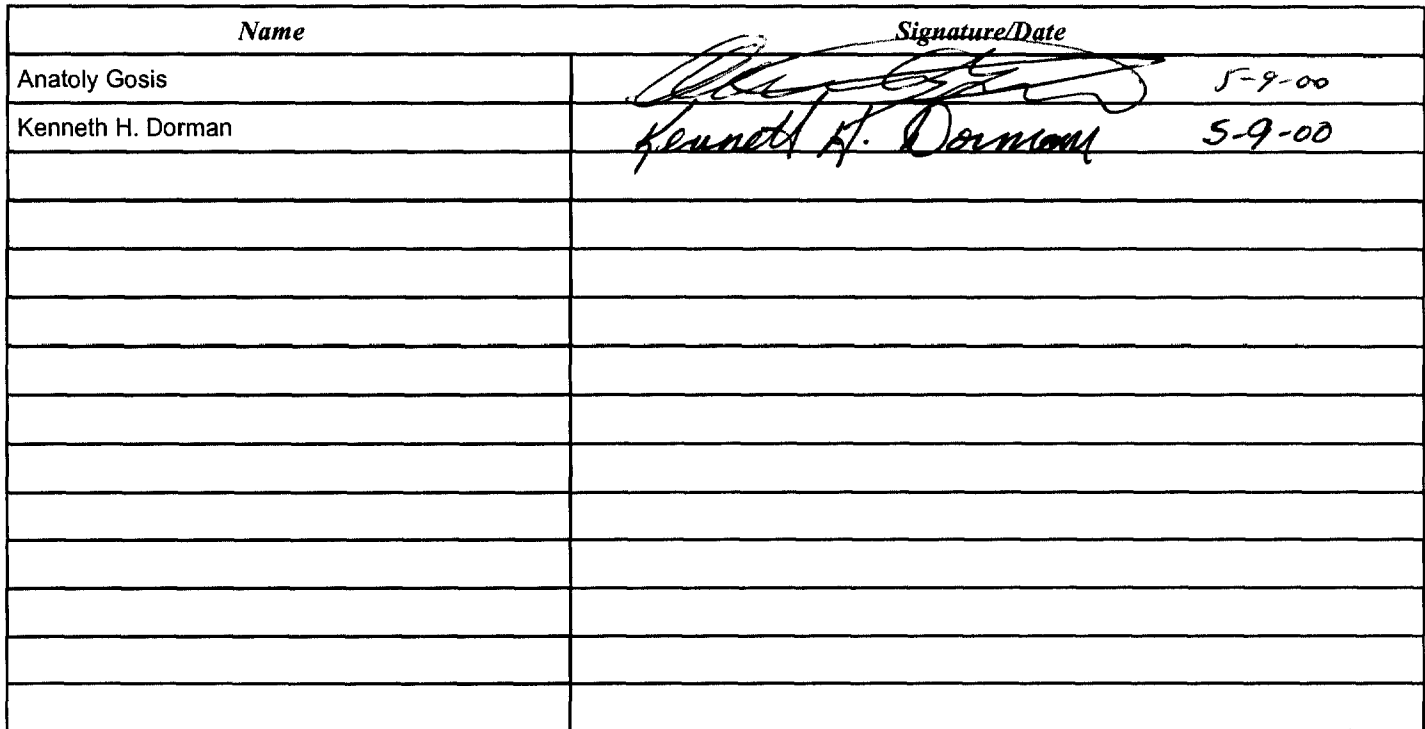 Name Signature/Date
Anatoly Gosis 5-9-00
Kenneth H. Dorman Kenneth H. Dorman 5-9-00